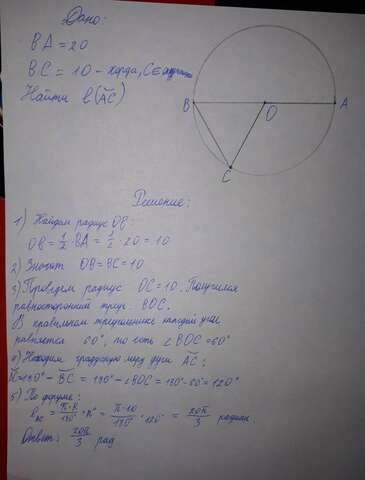 Дано:
BA = 20
BC = 10 - хорда, C ∈
Найти l(ÄC)
B
O
A
C
Решение:
1) Найдем радиус OB:
OB = 1/2 · BA = 1/2 · 20 = 10
2) Значит OB = BC = 10
3) Проведем радиус OC = 10. Получился
равносторонний треуг. BOC.
В правильном треугольнике каждый угол
равняется 60°, то есть ∠BOC = 60°
4) Находим градусную меру дуги AC:
180° - BC = 180° - ∠BOC = 180° - 60° = 120°
5) По форм
= π·R/180° · n° = π·10/180° · 120° = 20π/3 радиан.
Ответ: 20π/3 рад